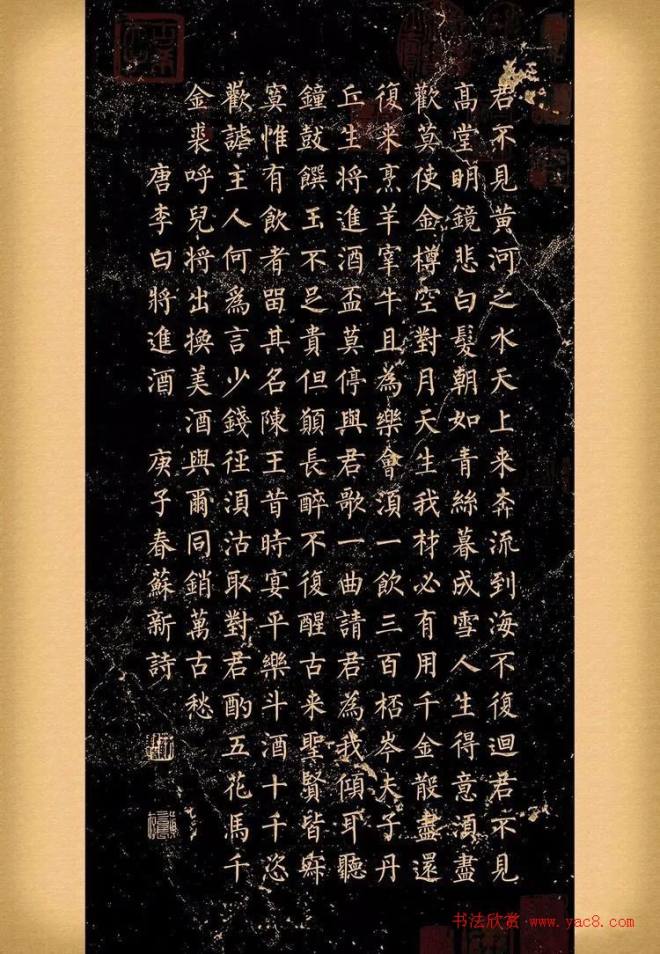 君不見黃河之水天上来奔流到海不復迴君不見
高堂明鏡悲白髮朝如青絲暮成雪人生得意湏盡
歡莫使金樽空對月天生我材必有用千金散盡還
復来烹羊宰牛且為樂會湏一飲三百桮岑夫子丹
丘生将進酒盃莫停與君歌一曲請君為我傾耳聽
鐘鼓饌玉不足貴但願長醉不復醒古来聖賢皆
寞惟有飲者留其名陳王昔時宴平樂斗酒十千恣
歡謔主人何為言少錢徑湏沽取對君酌五花馬千
金裘呼兒将出換美酒與爾同銷萬古愁
唐李白將進酒 庚子春蘇新詩
书法欣赏·www.yac8.com